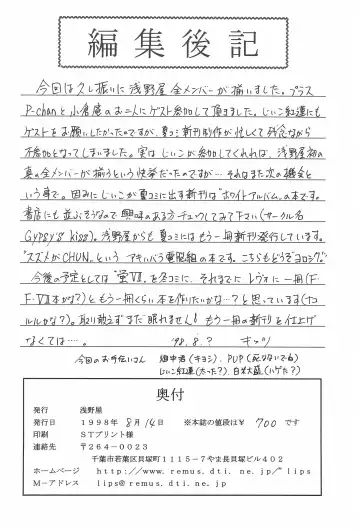 編集後記
今回は久し振りに浅野屋全メンバーが揃いました。プラス
P-chanと小倉庵のお二人にゲスト参加して頂きました。じいこ紅蓮にも
ゲストをお願いしたかったのですが、夏コミ新刊制作が忙しくて残念ながら
不参加となってしまいました。実はじいこが参加してくれれば、浅野屋初の
真の全メンバーが揃うという快挙だったのですが…それはまた次の機会と
いう事で。因みにじいこが夏コミに出す新刊は"ホワイトアルバム"の本です。
書店にも並ぶそうなので興味のある方チェックしてみて下さい(サークル名
Gypsy's kiss)。浅野屋からも夏コミにはもう一冊新刊発行しています。
"スズメがCHUN"という アキハバラ電脳組の本です。こちらもどうぞヨロシク。
今後の予定としては"蛍Ⅶ"を冬コミに、それまでにレヴォに一冊(F.
F.Ⅶ本かな?)ともう一冊くらい本を作りたいかな…?と思っています(ナコ
ルルかな?)。取り敢えずまだ眠れません!もう一冊の新刊を仕上げ
なくては…。 '98.8.? キッツ
今回のお手伝いさん 畑中君(キヨシ)、PUP
じいこ紅蓮
奥付
発行 浅野屋
発行日 1998年8月14日 ※本誌の値段は¥700です
印刷 STプリント様
連絡先 〒264-0023
千葉市若葉区貝塚町1115-7やま長貝塚ビル402
ホームページ http://www.remus.dti.ne.jp/~lips
M-アドレス lips@remus.dti.ne.jp